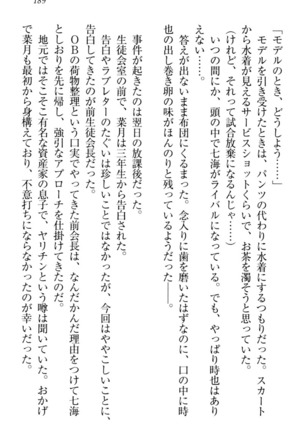 189
「モデルのとき、どうしよう……」
モデルを引き受けたときは、パンツの代わりに水着にするつもりだった。スカート
から水着が見えるサービスショットくらいで、お茶を濁そうと思っていた。
（けれど、それって試合放棄になるんじゃ……）
いつの間にか、頭の中で七海がライバルになっている。でも、やっぱり時也はあり
えない……。
答えが出ないまま布団にくるまった。念入りに歯を磨いたはずなのに、口の中に時
也の出し巻き卵の味がほんのりと残っているようだった――。
事件が起きたのは翌日の放課後だった。
生徒会室の前で、菜月は三年生から告白された。
告白やラブレターのたぐいは珍しいことではなかったが、今回はややこしいことに、
告白してきたのが前生徒会長だった。
OBの荷物整理という口実でやってきた前会長は、なんだかんだ理由をつけて七海
としおりを先に帰し、強引なアプローチを仕掛けてきたのだ。
地元ではそこそこ有名な資産家の息子で、ヤリチンという噂は聞いていた。おかげ
で菜月も最初から身構えており、不意打ちにならなかったのが幸いだった。